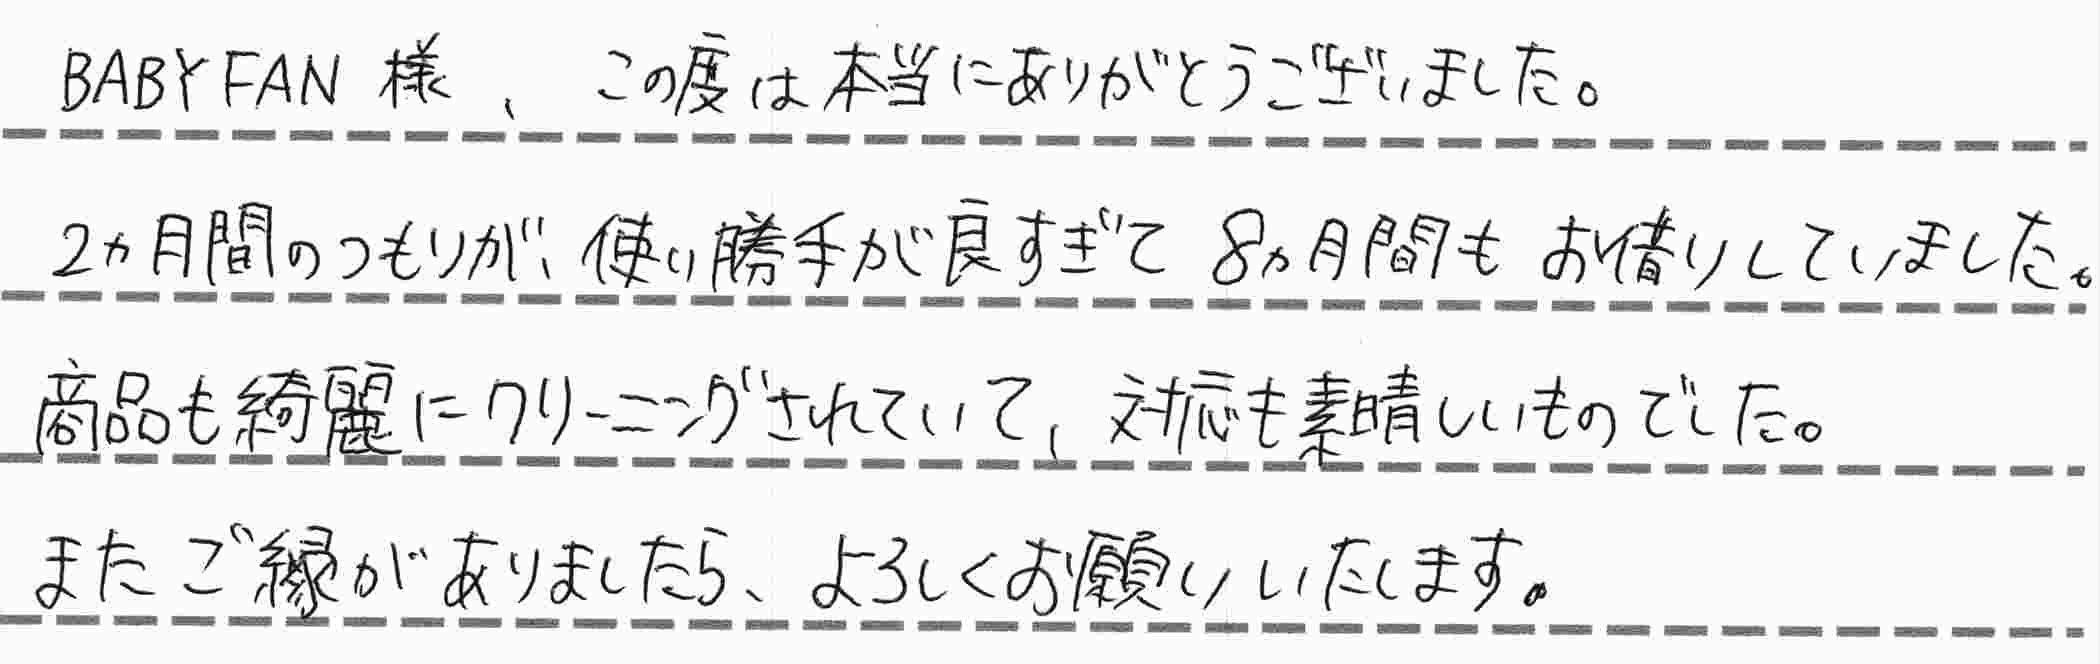 BABY FAN 様、この度は本当にありがとうございました。
2ヵ月間のつもりが、使い勝手が良すぎて 8ヵ月間も お借りしていました。
商品も綺麗にクリーニングされていて、対応も素晴しいものでした。
またご縁がありましたら、よろしくお願いいたします。